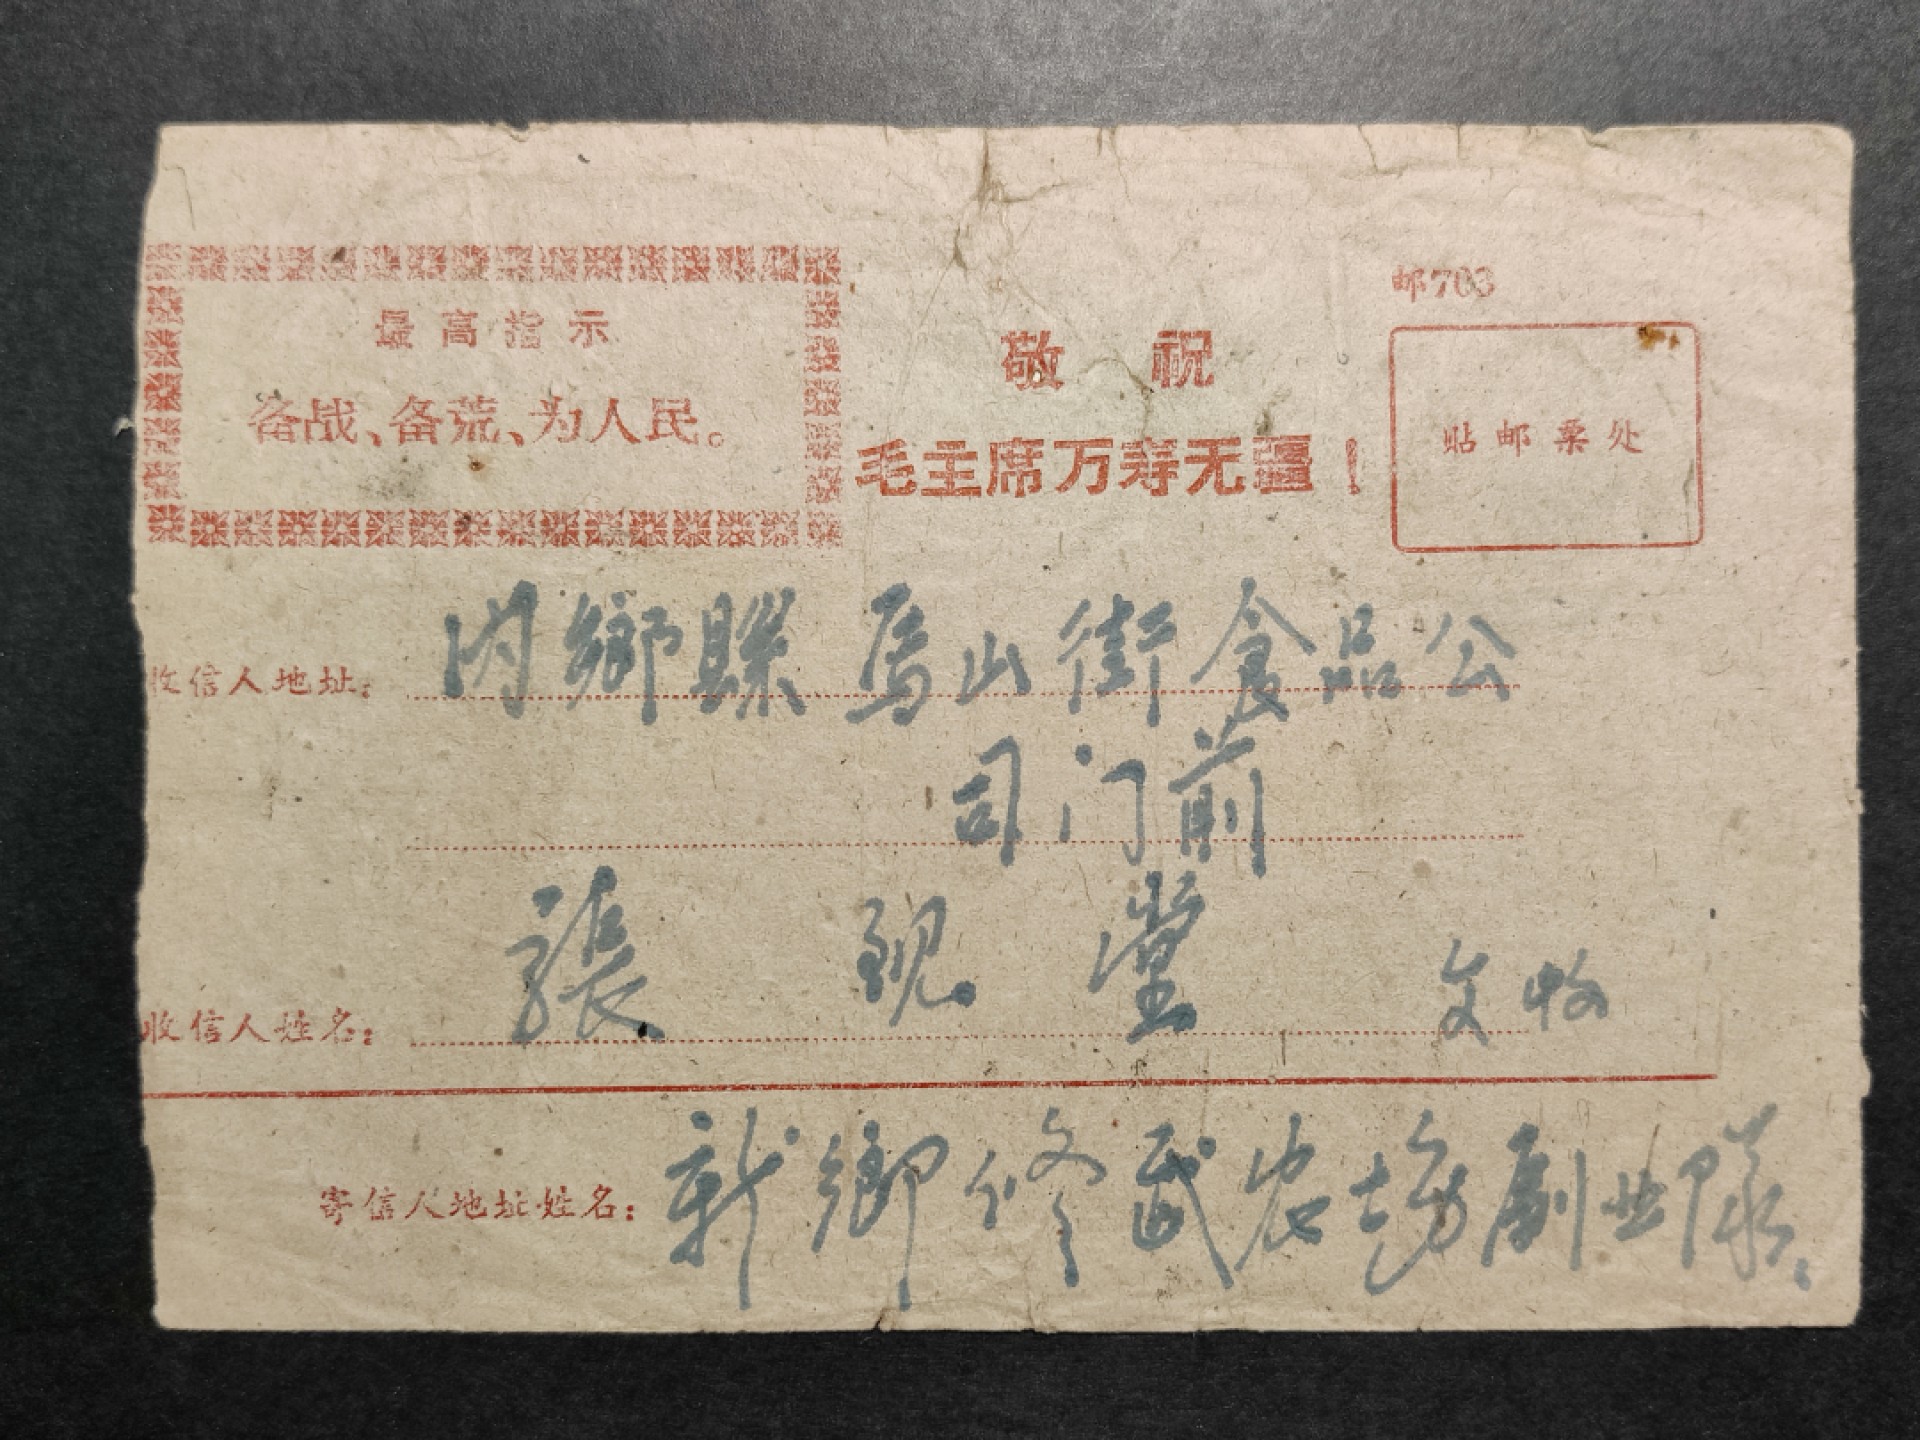 邮703
最高指示
备战、备荒、为人民。
敬祝
毛主席万寿无疆！
贴邮票处
收信人地址：内鄉縣马山街食品公
司门前
收信人姓名：張 现 堂 文收
寄信人地址姓名：新鄉修武农場副业隊.